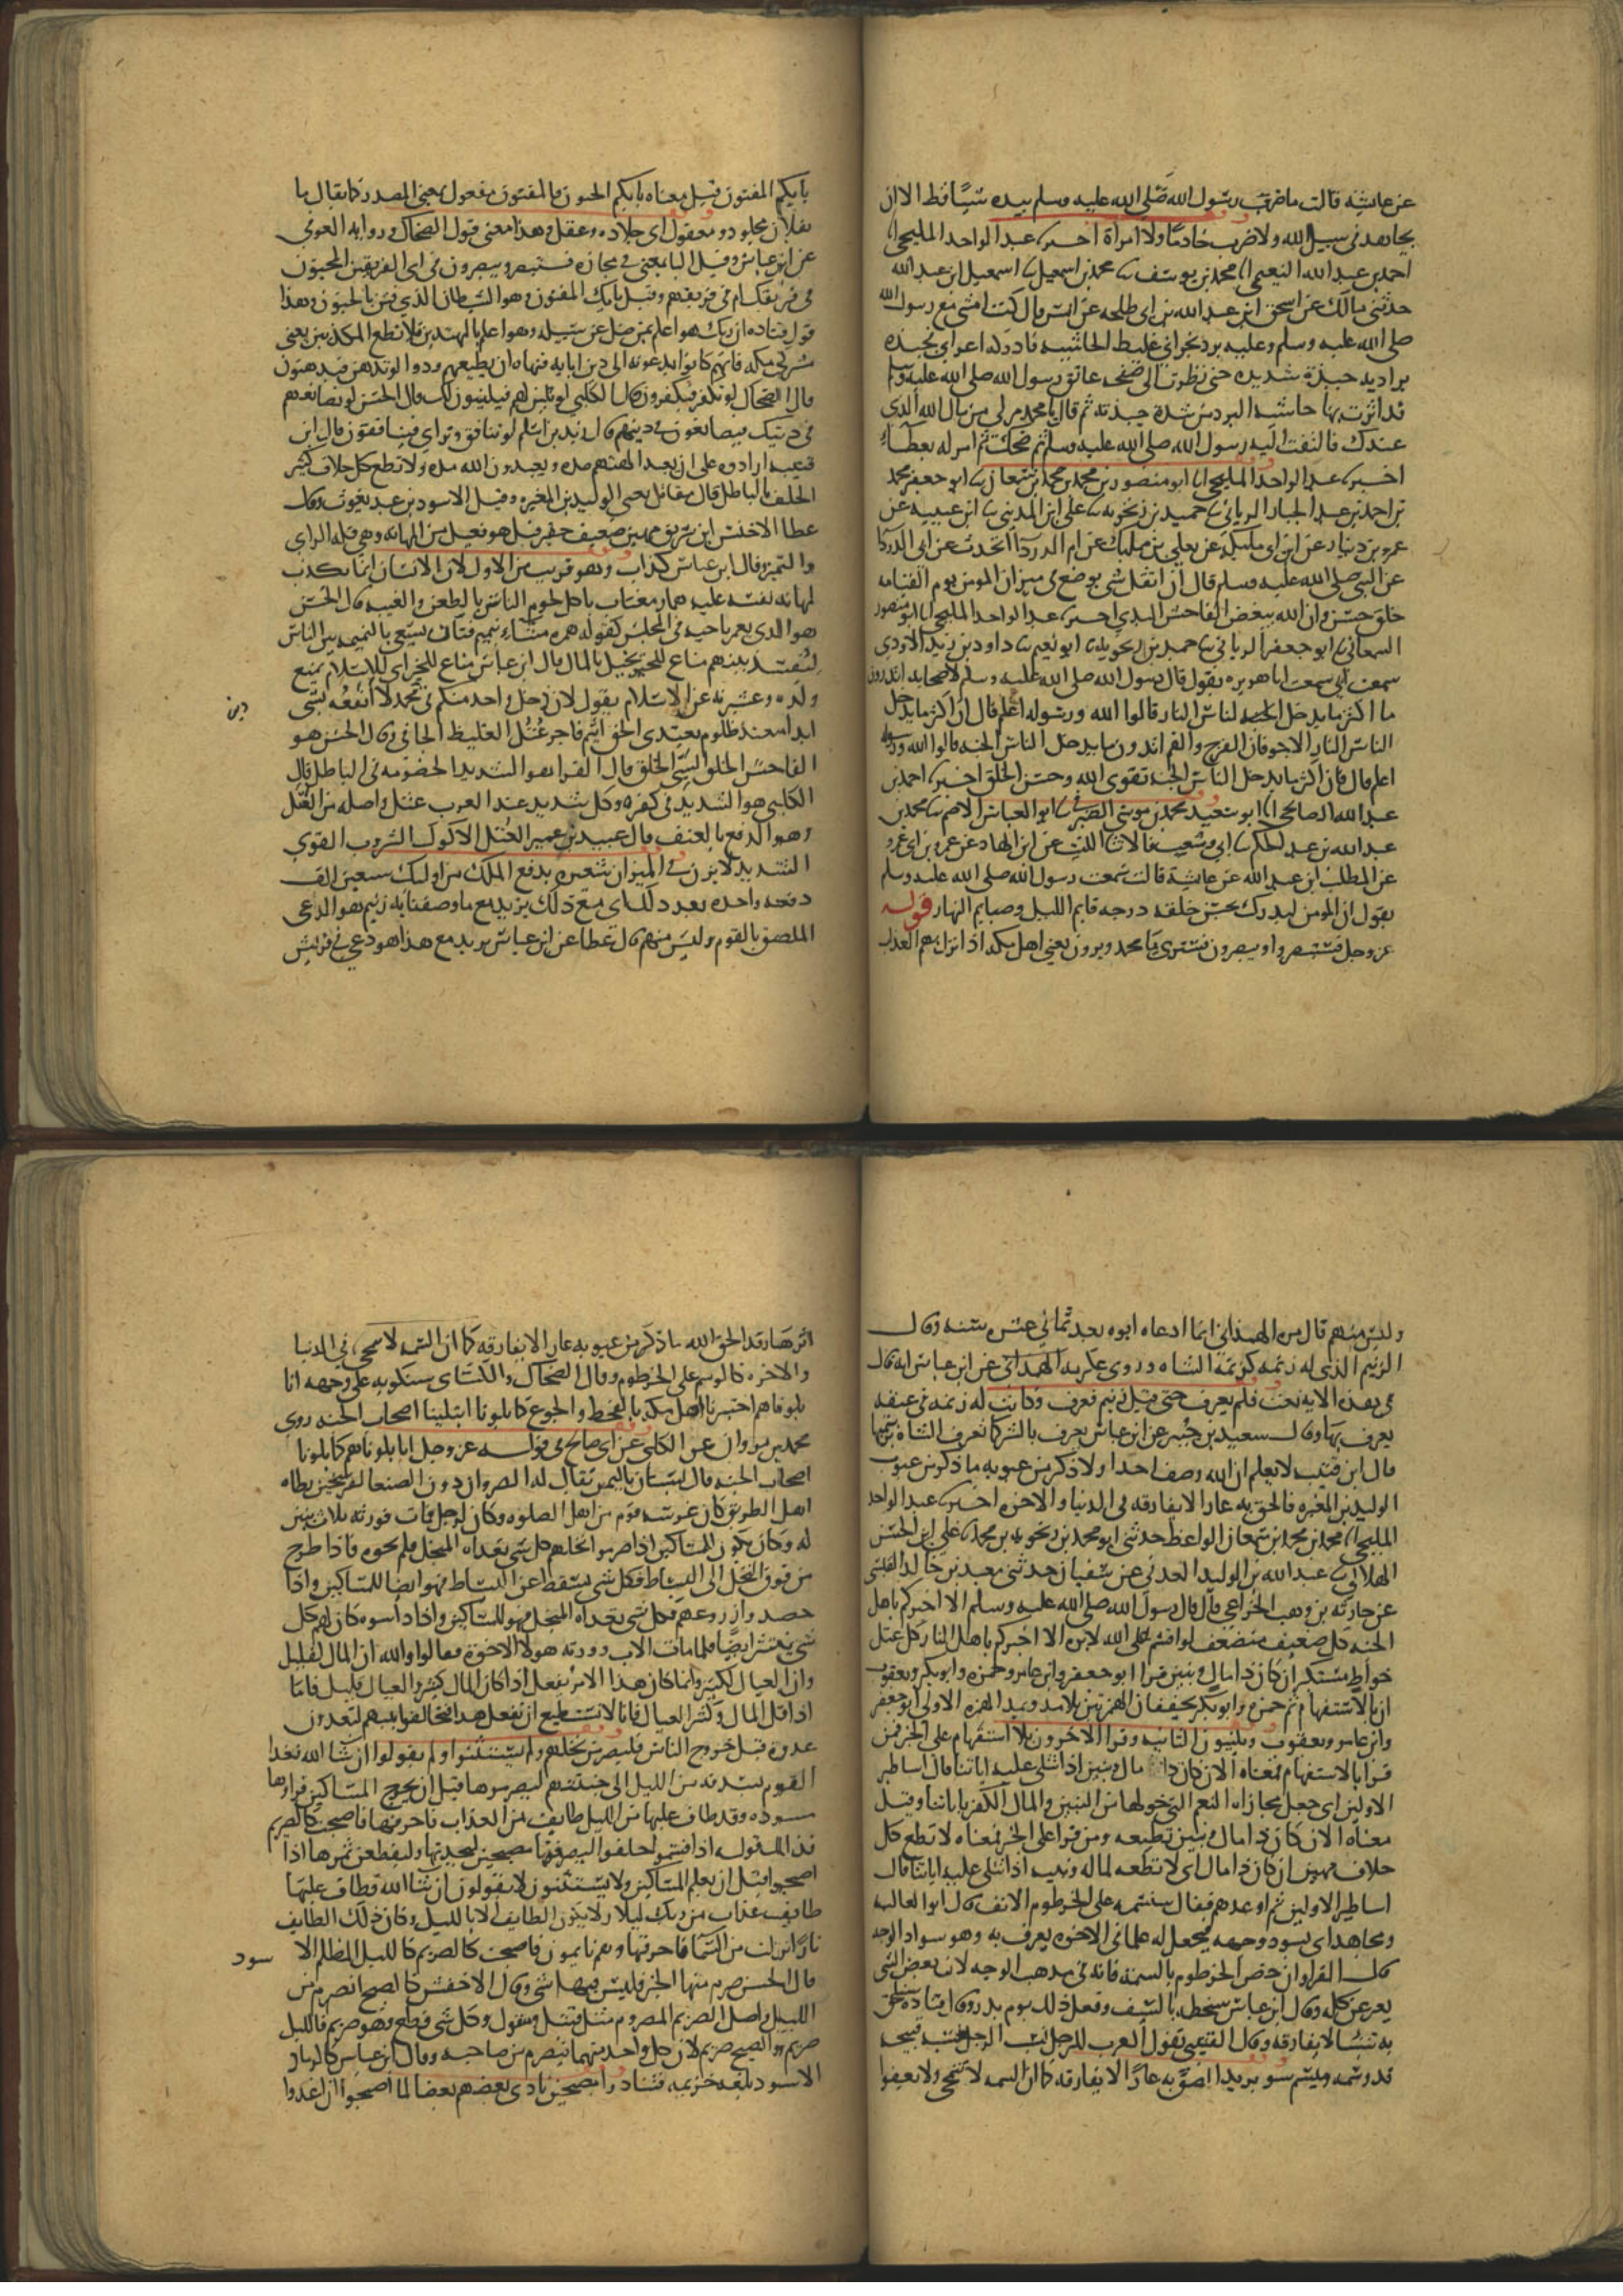 عن عايشة قالت ما ضرب رسول الله صلى الله عليه وسلم بيده شيئا قط الا ان
يجاهد في سبيل الله ولا ضرب خادما ولا امراة اخبرنا عبد الواحد المليحي انا
احمد بن عبد الله النعيمي انا محمد بن يوسف نا محمد بن اسمعيل نا اسمعيل ابن عبد الله
حدثني مالك عن اسحق ابن عبد الله بن ابي طلحه عن انس قال كنت امشي مع رسول الله
صلى الله عليه وسلم وعليه برد نجراني غليظ الحاشيه فادركه اعرابي فجبذه
بردايه جبذة شديده حتى نظرت الى صفحه عاتق رسول الله صلى الله عليه وسلم
قد اثرت بها حاشية البرد من شدة جبذته ثم قال يا محمد مر لي من مال الله الذي
عندك فالتفت اليه رسول الله صلى الله عليه وسلم ثم ضحك ثم امر له بعطاء
اخبرنا عبد الواحد المليحي انا ابو منصور بن محمد بن محمد ابن سمعان نا ابو جعفر محمد
بن احمد بن عبد الجبار الرياني نا حميد بن زنجويه نا علي ابن المديني نا ابن عيينه عن
عمرو بن دينار عن ابن ابي مليكه عن يعلي بن مملك عن ام الدردا تحدث عن ابي الدردا
عن النبي صلى الله عليه وسلم قال ان اثقل شي يوضع في ميزان المومن يوم القيامه
خلق حسن وان الله يبغض الفاحش البذي اخبرنا عبد الواحد المليحي انا ابو منصور
السمعاني نا ابو جعفر الرياني نا حميد بن زنجويه نا ابو نعيم نا داود بن يزيد الاودي
سمعت ابي سمعت ابا هريره يقول قال رسول الله صلى الله عليه وسلم لاصحابه اتدرون
ما اكثر ما يدخل الناس النار قالوا الله ورسوله اعلم قال ان اكثر ما يدخل
الناس النار الاجوفان الفرج والفم اتدرون ما يدخل الناس الجنه قالوا الله ورسوله
اعلم قال فان اكثر ما يدخل الناس الجنه تقوى الله وحسن الخلق اخبرنا احمد بن
عبد الله الصالحي انا ابو سعيد محمد بن موسى الصيرفي نا ابو العباس الاصم نا محمد بن
عبد الله بن عبد الحكم نا ابي وشعيب قالا نا الليث عن ابن الهاد عن عمرو بن ابي عمرو
عن المطلب ابن عبد الله عن عايشة قالت سمعت رسول الله صلى الله عليه وسلم
يقول ان المومن ليدرك بحسن خلقه درجه قايم الليل وصايم النهار قوله
عز وجل فستبصر ويبصرون فسترى يا محمد ويرون يعني اهل مكه اذا نزل بهم العذاب
بايكم المفتون قيل معناه بايكم الجنون فالمفتون مفعول بمعنى المصدر كما يقال ما
بفلان مجلود ومعقول اي جلاده وعقل وهذا معنى قول الضحاك ورواية العوفي
عن ابن عباس وقيل البا بمعنى في مجازه فستبصر ويبصرون في اي الفريقين المجنون
في فريقك ام في فريقهم وقيل بايكم المفتون وهو الشيطان الذي فتن بالجنون وهذا
قول قتاده ان ربك هو اعلم بمن ضل عن سبيله وهو اعلم بالمهتدين فلا تطع المكذبين يعني
مشركي مكه فانهم كانوا يدعونه الى دين ابايه فنهاه ان يطيعهم ودوا لو تدهن فيدهنون
قال الضحاك لو تكفر فيكفرون قال الكلبي لو تلين لهم فيلينون لك قال الحسن لو تصانعهم
في دينك فيصانعون في دينهم قال زيد بن اسلم لو تنافق وتراي فينافقون قال ابن
قتيبه ارادوه على ان يعبد الهتهم مده ويعبدون الله مده ولا تطع كل حلاف كثير
الحلف بالباطل قال مقاتل يعني الوليد بن المغيره وقيل الاسود بن عبد يغوث وقال
عطا الاخنس ابن شريق مهين ضعيف حقير قيل هو فعيل من المهانه وهي قله الراي
والتمييز وقال ابن عباس كذاب وهو قريب من الاول لان الانسان انما يكذب
لمهانه نفسه عليه هماز مغتاب ياكل لحوم الناس بالطعن والغيبه قال الحسن
هو الذي يغمز باخيه في المجلس كقوله همزه مشاء بنميم فتات يسعى بالنميمه بين الناس
ليفسد بينهم مناع للخير بخيل بالمال قال ابن عباس مناع للخير اي للاسلام يمنع
ولده وعشيرته عن الاسلام يقول لان دخل واحد منكم في محمد لا انفعه بشي
دين
ابدا معتد ظلوم يعتدى الحق اثيم فاجر عتل الغليظ الجافي وقال الحسن هو
الفاحش الخلق السيي الخلق قال الفرا هو الشديد الخصومه في الباطل قال
الكلبي هو الشديد في كفره وكل شديد عند العرب عتل واصله من العتل
وهو الدفع بالعنف قال عبيد بن عمير العتل الاكول الشروب القوي
الشديد لا يزن في الميزان شعيره يدفع الملك من اوليك سبعين الف
دفعه واحده بعد ذلك اي مع ذلك يريد مع ما وصفناه به زنيم هو الدعي
الملصق بالقوم وليس منهم قال عطا عن ابن عباس يريد مع هذا هو دعي في قريش
وليس منهم قال مره الهمذاني انما ادعاه ابوه بعد ثماني عشره سنه وقال
الزنيم الذي له زنمه كزنمه الشاه وروى عكرمه الهمداني عن ابن عباس انه قال
في هذه الايه نعت فلم يعرف حتى قيل زنيم فعرف وكانت له زنمه في عنقه
يعرف بها وقال سعيد بن جبير عن ابن عباس يعرف بالشر كما تعرف الشاه بزنمتها
قال ابن قتيبه لا نعلم ان الله وصف احدا ولا ذكر من عيوبه ما ذكر من عيوب
الوليد بن المغيره فالحق به عارا لا يفارقه في الدنيا والاخره اخبرنا عبد الواحد
المليحي انا محمد بن محمد بن سمعان الواعظ حدثني ابو محمد بن زنجويه بن محمد نا علي ابن الحسن
الهلالي نا عبد الله بن الوليد العدني عن سفيان حدثني معبد بن خالد القيسي
عن حارثه بن وهب الخزاعي قال قال رسول الله صلى الله عليه وسلم الا اخبركم باهل
الجنه كل ضعيف متضعف لو اقسم على الله لابره الا اخبركم باهل النار كل عتل
جواظ مستكبر ان كان ذا مال وبنين قرا ابو جعفر وابن عامر وحمزه وابو بكر ويعقوب
ان بالاستفهام ثم حمزه وابو بكر يخففان الهمزتين بلا مد ويمد الهمزه الاولى ابو جعفر
وابن عامر ويعقوب ويلينون الثانيه وقرا الاخرون بلا استفهام على الخبر فمن
قرا بالاستفهام فمعناه الان كان ذا مال وبنين اذا تتلى عليه اياتنا قال اساطير
الاولين اي جعل مجازاه النعم التي خولها من البنين والمال الكفر باياتنا وقيل
معناه الان كان ذا مال وبنين تطيعه ومن قرا على الخبر فمعناه لا تطع كل
حلاف مهين ان كان ذا مال اي لا تطعه لماله وبنيه اذا تتلى عليه اياتنا قال
اساطير الاولين ثم اوعدهم فقال سنسمه على الخرطوم الانف قال ابو العاليه
ومجاهد اي يسود وجهه فيجعل له علما في الاخره يعرف به وهو سواد الوجه
قال الفرا وان خص الخرطوم بالسمه فانه في مذهب الوجه لان بعض الشي
يعبر عن كله وقال ابن عباس سنخطمه بالسيف وفعل ذلك يوم بدر وقال قتاده سنلحق
به شيئا لا يفارقه وقال القتيبي تقول العرب للرجل سب الرجل سبه قبيحه
قد وسمه ميسم سو يريد الصق به عارا لا يفارقه كما ان السمه لا تنمحي ولا يعفوا
اثرها وقد الحق الله بما ذكر من عيوبه عارا لا يفارقه كما ان السمه لا تنمحي في الدنيا
والاخره كالوسم على الخرطوم وقال الضحاك والكسائي سنكويه على وجهه انا
بلوناهم اختبرنا اهل مكه بالقحط والجوع كما بلونا ابتلينا اصحاب الجنه روى
محمد بن مروان عن الكلبي عن ابي صالح في قوله عز وجل انا بلوناهم كما بلونا
اصحاب الجنه قال بستان باليمن يقال له الصروان دون الصنعا بفرسخين يطاه
اهل الطريق كان غرسه قوم من اهل الصلوه وكان لرجل فمات فورثه ثلاث بنين
له وكان يكون للمساكين اذا صرموا نخلهم كل شي تعداه المنجل فلم يجزه فاذا طرح
من فوق النخل الى البساط فكل شي يسقط عن البساط فهو ايضا للمساكين واذا
حصدوا زروعهم فكل شي تعداه المنجل فهو للمساكين واذا داسوه كان لهم كل
شي ينتثر ايضا فلما مات الاب وورثه هولا الاخوة فقالوا والله ان المال لقليل
وان العيال لكثير وانما كان هذا الامر يفعل اذ كان المال كثيرا والعيال قليلا فاما
اذا قل المال وكثر العيال فانا لا نستطيع ان نفعل هذا فتحالفوا بينهم ليغدون
غدوة قبل خروج الناس فليصرمن نخلهم ولم يستثنوا ولم يقولوا ان شا الله فغدا
القوم بسدفه من الليل الى جنتهم ليصرموها قبل ان يخرج المساكين فراوها
مسوده وقد طاف عليها من الليل طايف من العذاب فاحرقها فاصبحت كالصريم
فذلك قوله اذ اقسموا حلفوا ليصرمنها مصبحين ليجدنها وليقطعن ثمرها اذا
اصبحوا قبل ان يعلم المساكين ولا يستثنون لا يقولون ان شا الله فطاف عليها
طايف عذاب من ربك ليلا ولا يكون الطايف الا بالليل وكان ذلك الطايف
نارا نزلت من السما فاحرقتها وهم نايمون فاصبحت كالصريم كالليل المظلم الاسود
قال الحسن صرم منها الخير فليس فيها شي وقال الاخفش كالصبح انصرم من
الليل واصل الصريم المصروم مثل قتيل ومقتول وكل شي قطع فهو صريم فالليل
صريم والصبح صريم لان كل واحد منهما ينصرم من صاحبه وقال ابن عباس كالرماد
الاسود بلغه خزيمه فتنادوا مصبحين نادى بعضهم بعضا لما اصبحوا ان اغدوا